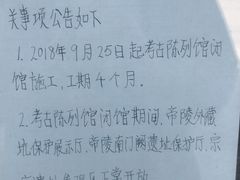 关事项公告如下
1. 2018年9月25日起考古陈列馆闭
馆施工,工期4个月.
2. 考古陈列馆闭馆期间.帝陵外藏
坑保护展示厅.帝陵南门阙遗址保护厅.宗